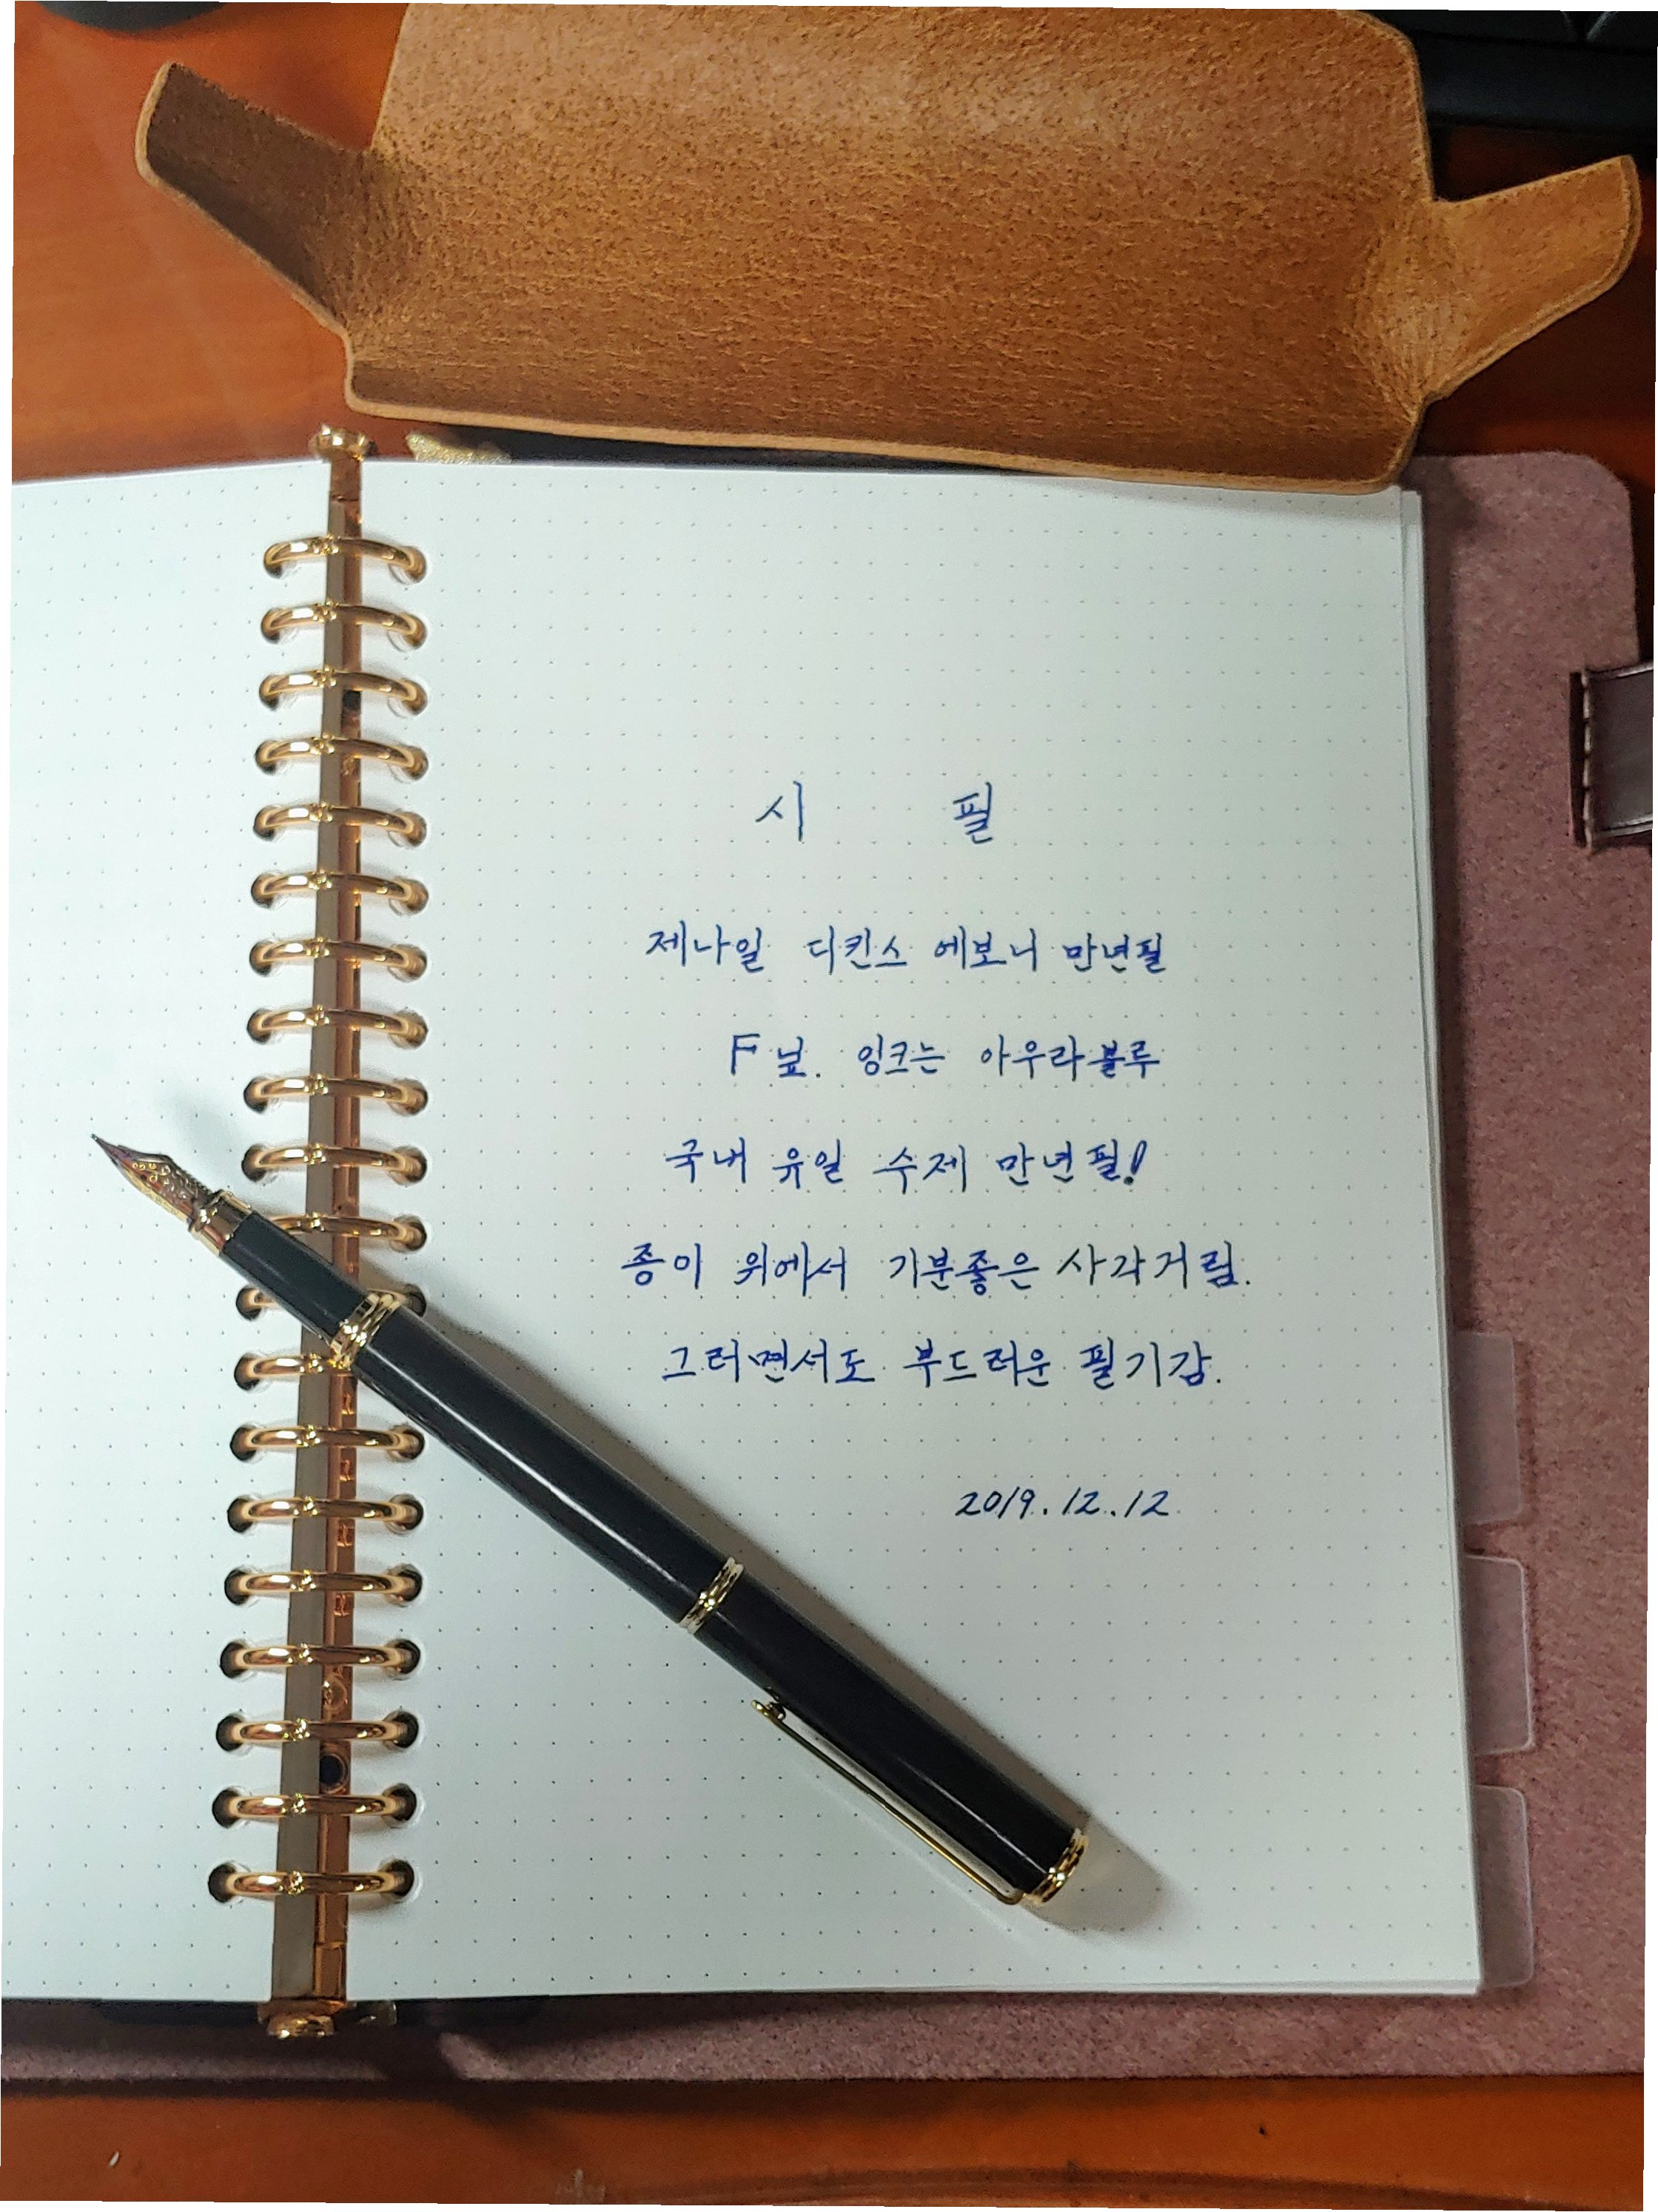 시 필
제나일 디킨스 에보니 만년필
F닢. 잉크는 아우라블루
국내 유일 수제 만년필!
종이 위에서 기분좋은 사각거림.
그러면서도 부드러운 필기감.
2019.12.12